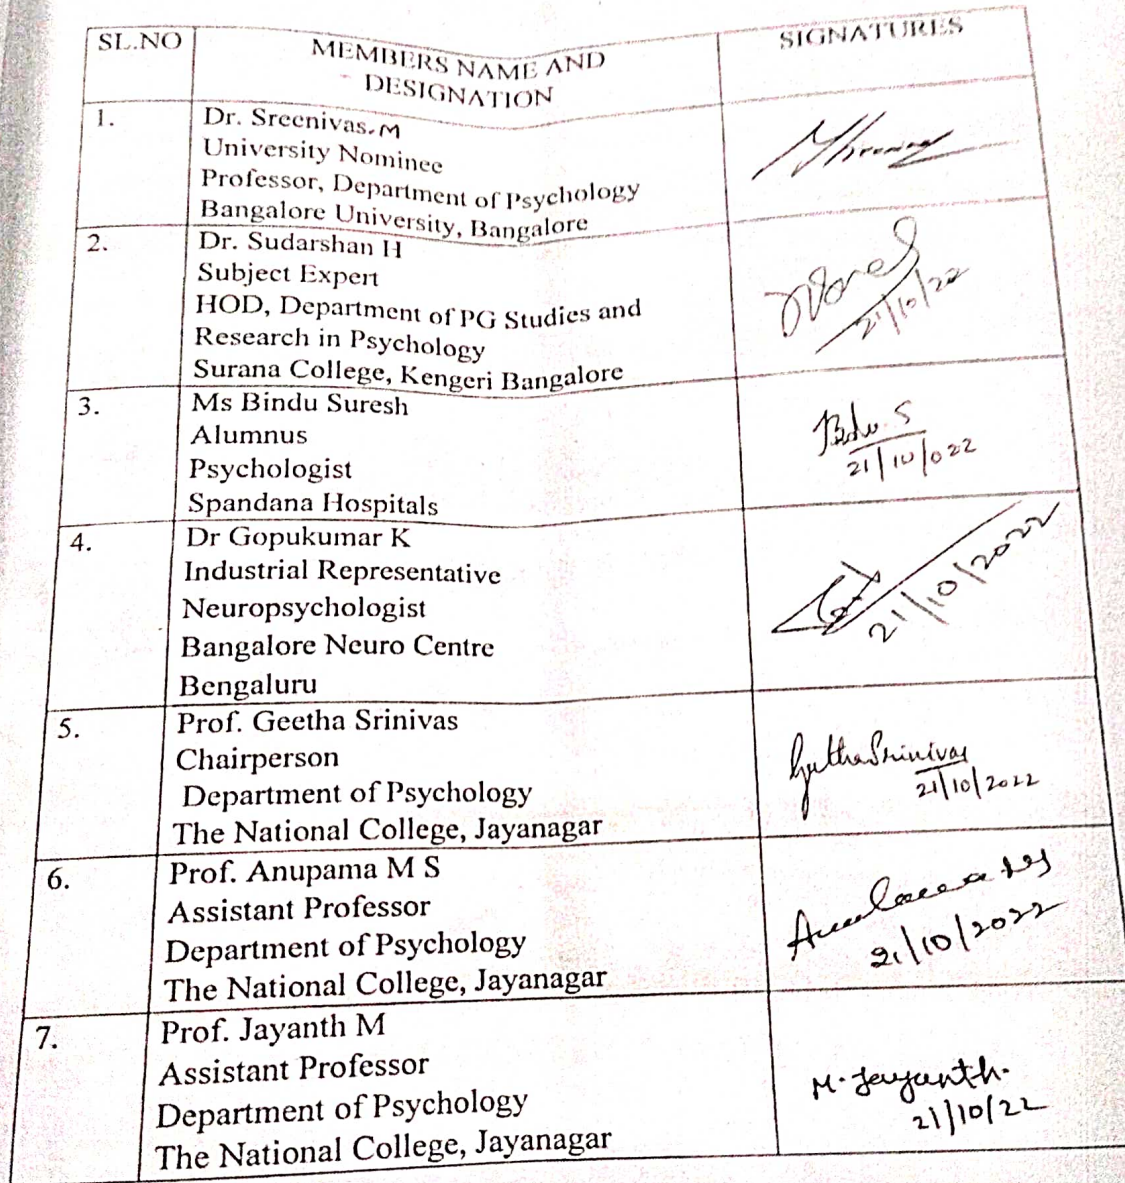 SL.NO
MEMBERS NAME AND
DESIGNATION
SIGNATURES
1.
Dr. Sreenivas.M
University Nominee
Professor, Department of Psychology
Bangalore University, Bangalore
2.
Dr. Sudarshan H
Subject Expert
HOD, Department of PG Studies and
Research in Psychology
Surana College, Kengeri Bangalore
21/10/22
3.
Ms Bindu Suresh
Alumnus
Psychologist
Spandana Hospitals
Bindu. S
21/10/022
4.
Dr Gopukumar K
Industrial Representative
Neuropsychologist
Bangalore Neuro Centre
Bengaluru
21/10/2022
5.
Prof. Geetha Srinivas
Chairperson
Department of Psychology
The National College, Jayanagar
Geetha Srinivas
21/10/2022
6.
Prof. Anupama M S
Assistant Professor
Department of Psychology
The National College, Jayanagar
21/10/2022
7.
Prof. Jayanth M
Assistant Professor
Department of Psychology
The National College, Jayanagar
M. Jayanth.
21/10/22